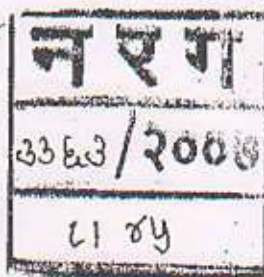 न र ग
३३६३/२००७
८१ ४५